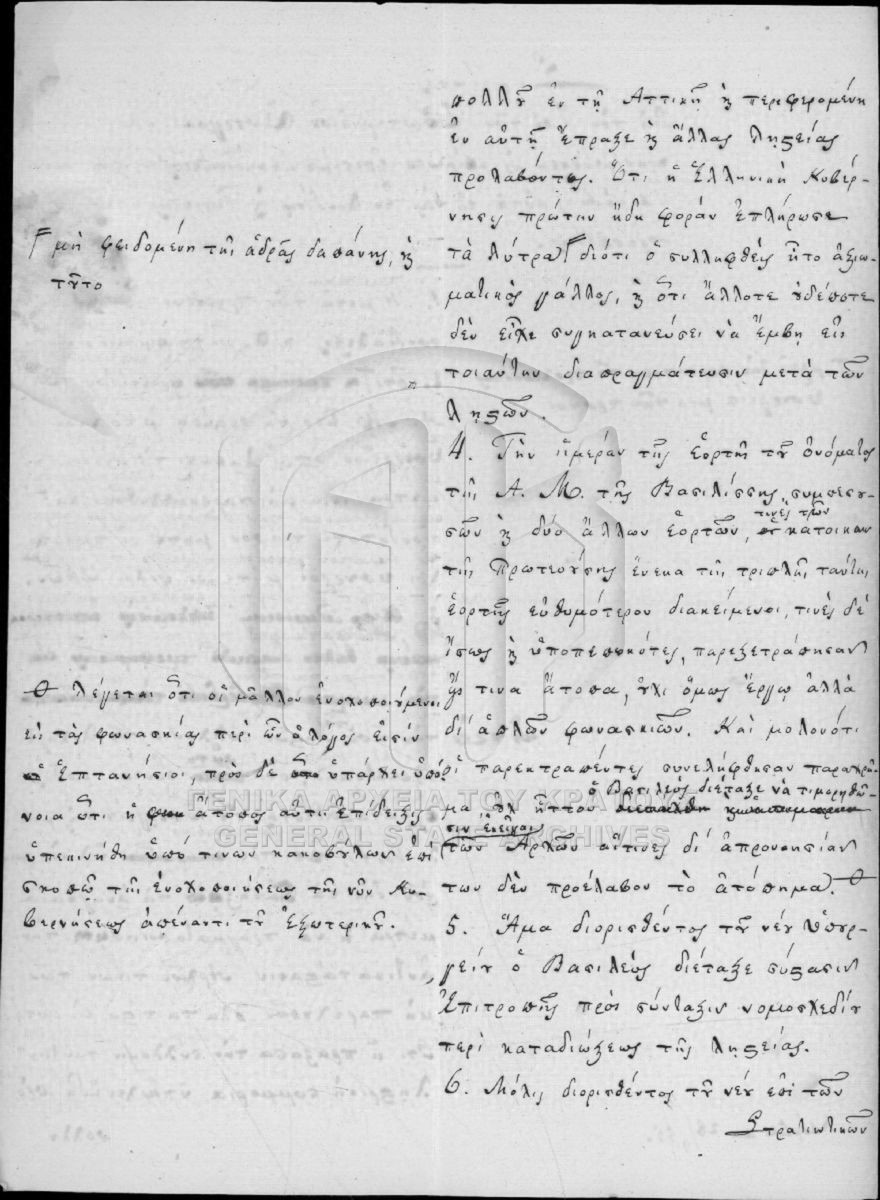 πολλοῦ ἐν τῇ Ἀττικῇ ϗ περιφερομένη
ἐν αὐτῇ ἔπραξε ϗ ἄλλας ληϛείας
προλαβόντως. Ὅτι ἡ Ἑλληνικὴ Κυβέρ-
νησις πρώτην ἤδη φορὰν ἐπλήρωσε
τὰ λύτρα διότι ὁ συλληφθεὶς ἦτο ἀξιω-
ματικὸς γάλλος, ϗ ὅτι ἄλλοτε οὐδέποτε
δὲν εἶχε συγκατανεύσει νὰ ἔμβῃ εἰς
τοιαύτην διαπραγμάτευσιν μετὰ τῶν
ληϛῶν.
4. Τὴν ἡμέραν τῆς ἑορτῆς τοῦ ὀνόματος
τῆς Α. Μ. τῆς Βασιλίσσης, συμπεσου-
σῶν ϗ δύο ἄλλων ἑορτῶν, τινὲς τῶν κατοίκων
τῆς Πρωτευούσης ἕνεκα τῆς τριπλῆς ταύτης
ἑορτῆς εὐθυμότερον διακείμενοι, τινὲς δὲ
ἴσως ϗ ὑποπεπωκότες, παρεξετράπησαν
εἴς τινα ἄτοπα, οὐχὶ ὅμως ἔργῳ ἀλλὰ
δι' ἁπλῶν φωνασκιῶν. Καὶ μολονότι
οἱ παρεκτραπέντες συνελήφθησαν παραχρῆ-
μα οὐχ ἧττον ὁ Βασιλεὺς διέταξε νὰ τιμωρηθῶ-
σιν ἐκεῖναι
τῶν Ἀρχῶν αἵτινες δι' ἀπρονοησίαν
των δὲν προέλαβον τὸ ἀτόπημα.
5. Ἅμα διορισθέντος τοῦ νέου Ὑπουρ-
γείου ὁ Βασιλεὺς διέταξε σύϛασιν
Ἐπιτροπῆς πρὸς σύνταξιν νομοσχεδίου
περὶ καταδιώξεως τῆς ληϛείας.
6. Μόλις διορισθέντος τοῦ νέου ἐπὶ τῶν
Στρατιωτικῶν
μὴ φειδομένη τῆς ἁδρᾶς δαπάνης, ϗ
τοῦτο
λέγεται ὅτι οἱ μᾶλλον ἐνοχοποιούμενοι
εἰς τὰς φωνασκίας περὶ ὧν ὁ λόγος εἰσὶν
Ἑπτανήσιοι, πρὸς δὲ ὑπάρχει ὑπό-
νοια ὅτι ἡ ἄτοπος αὕτη ἐπίδειξις
ὑπεκινήθη ὑπό τινων κακοβούλων ἐπὶ
σκοπῷ τῆς ἐνοχοποιήσεως τῆς νῦν Κυ-
βερνήσεως ἀπέναντι τοῦ Ἐξωτερικοῦ.
ΓΕΝΙΚΑ ΑΡΧΕΙΑ ΤΟΥ ΚΡΑΤΟΥΣ
GENERAL STATE ARCHIVES